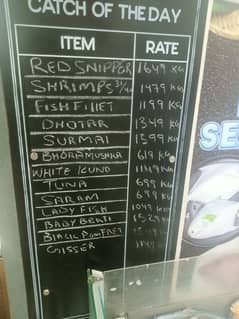 CATCH OF THE DAY
ITEM RATE
RED SNIPPER 1649 KG
SHRIMPS 1499 KG
FISH FILLET 1199 KG
DHOTAR 1349 KG
SURMAI 1599 KG
BHORA MUSHKA 619 KG
WHITE KUND KG
TUNA 699 KG
SARAM 699 KG
LADY FISH 1049 KG
BABY BEKTI 1529 KG
BLACK POMFRET
GISSER
SE